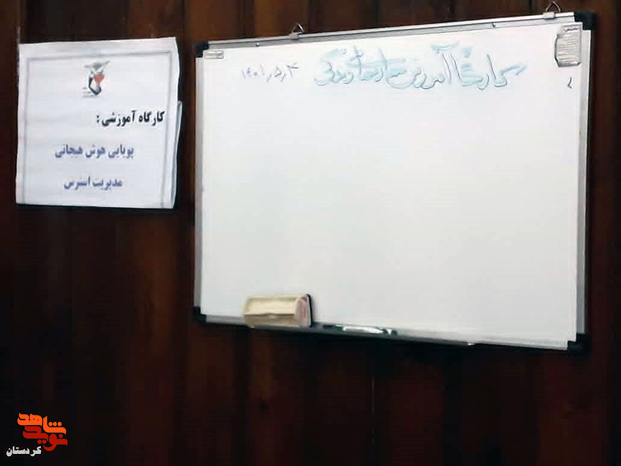 کارگاه آموزشی :
پویایی هوش هیجانی
مدیریت استرس
کارگاه آموزش مهارتهای زندگی ۱۴۰۱٫۵٫۳
نوید شاهد
کردستان